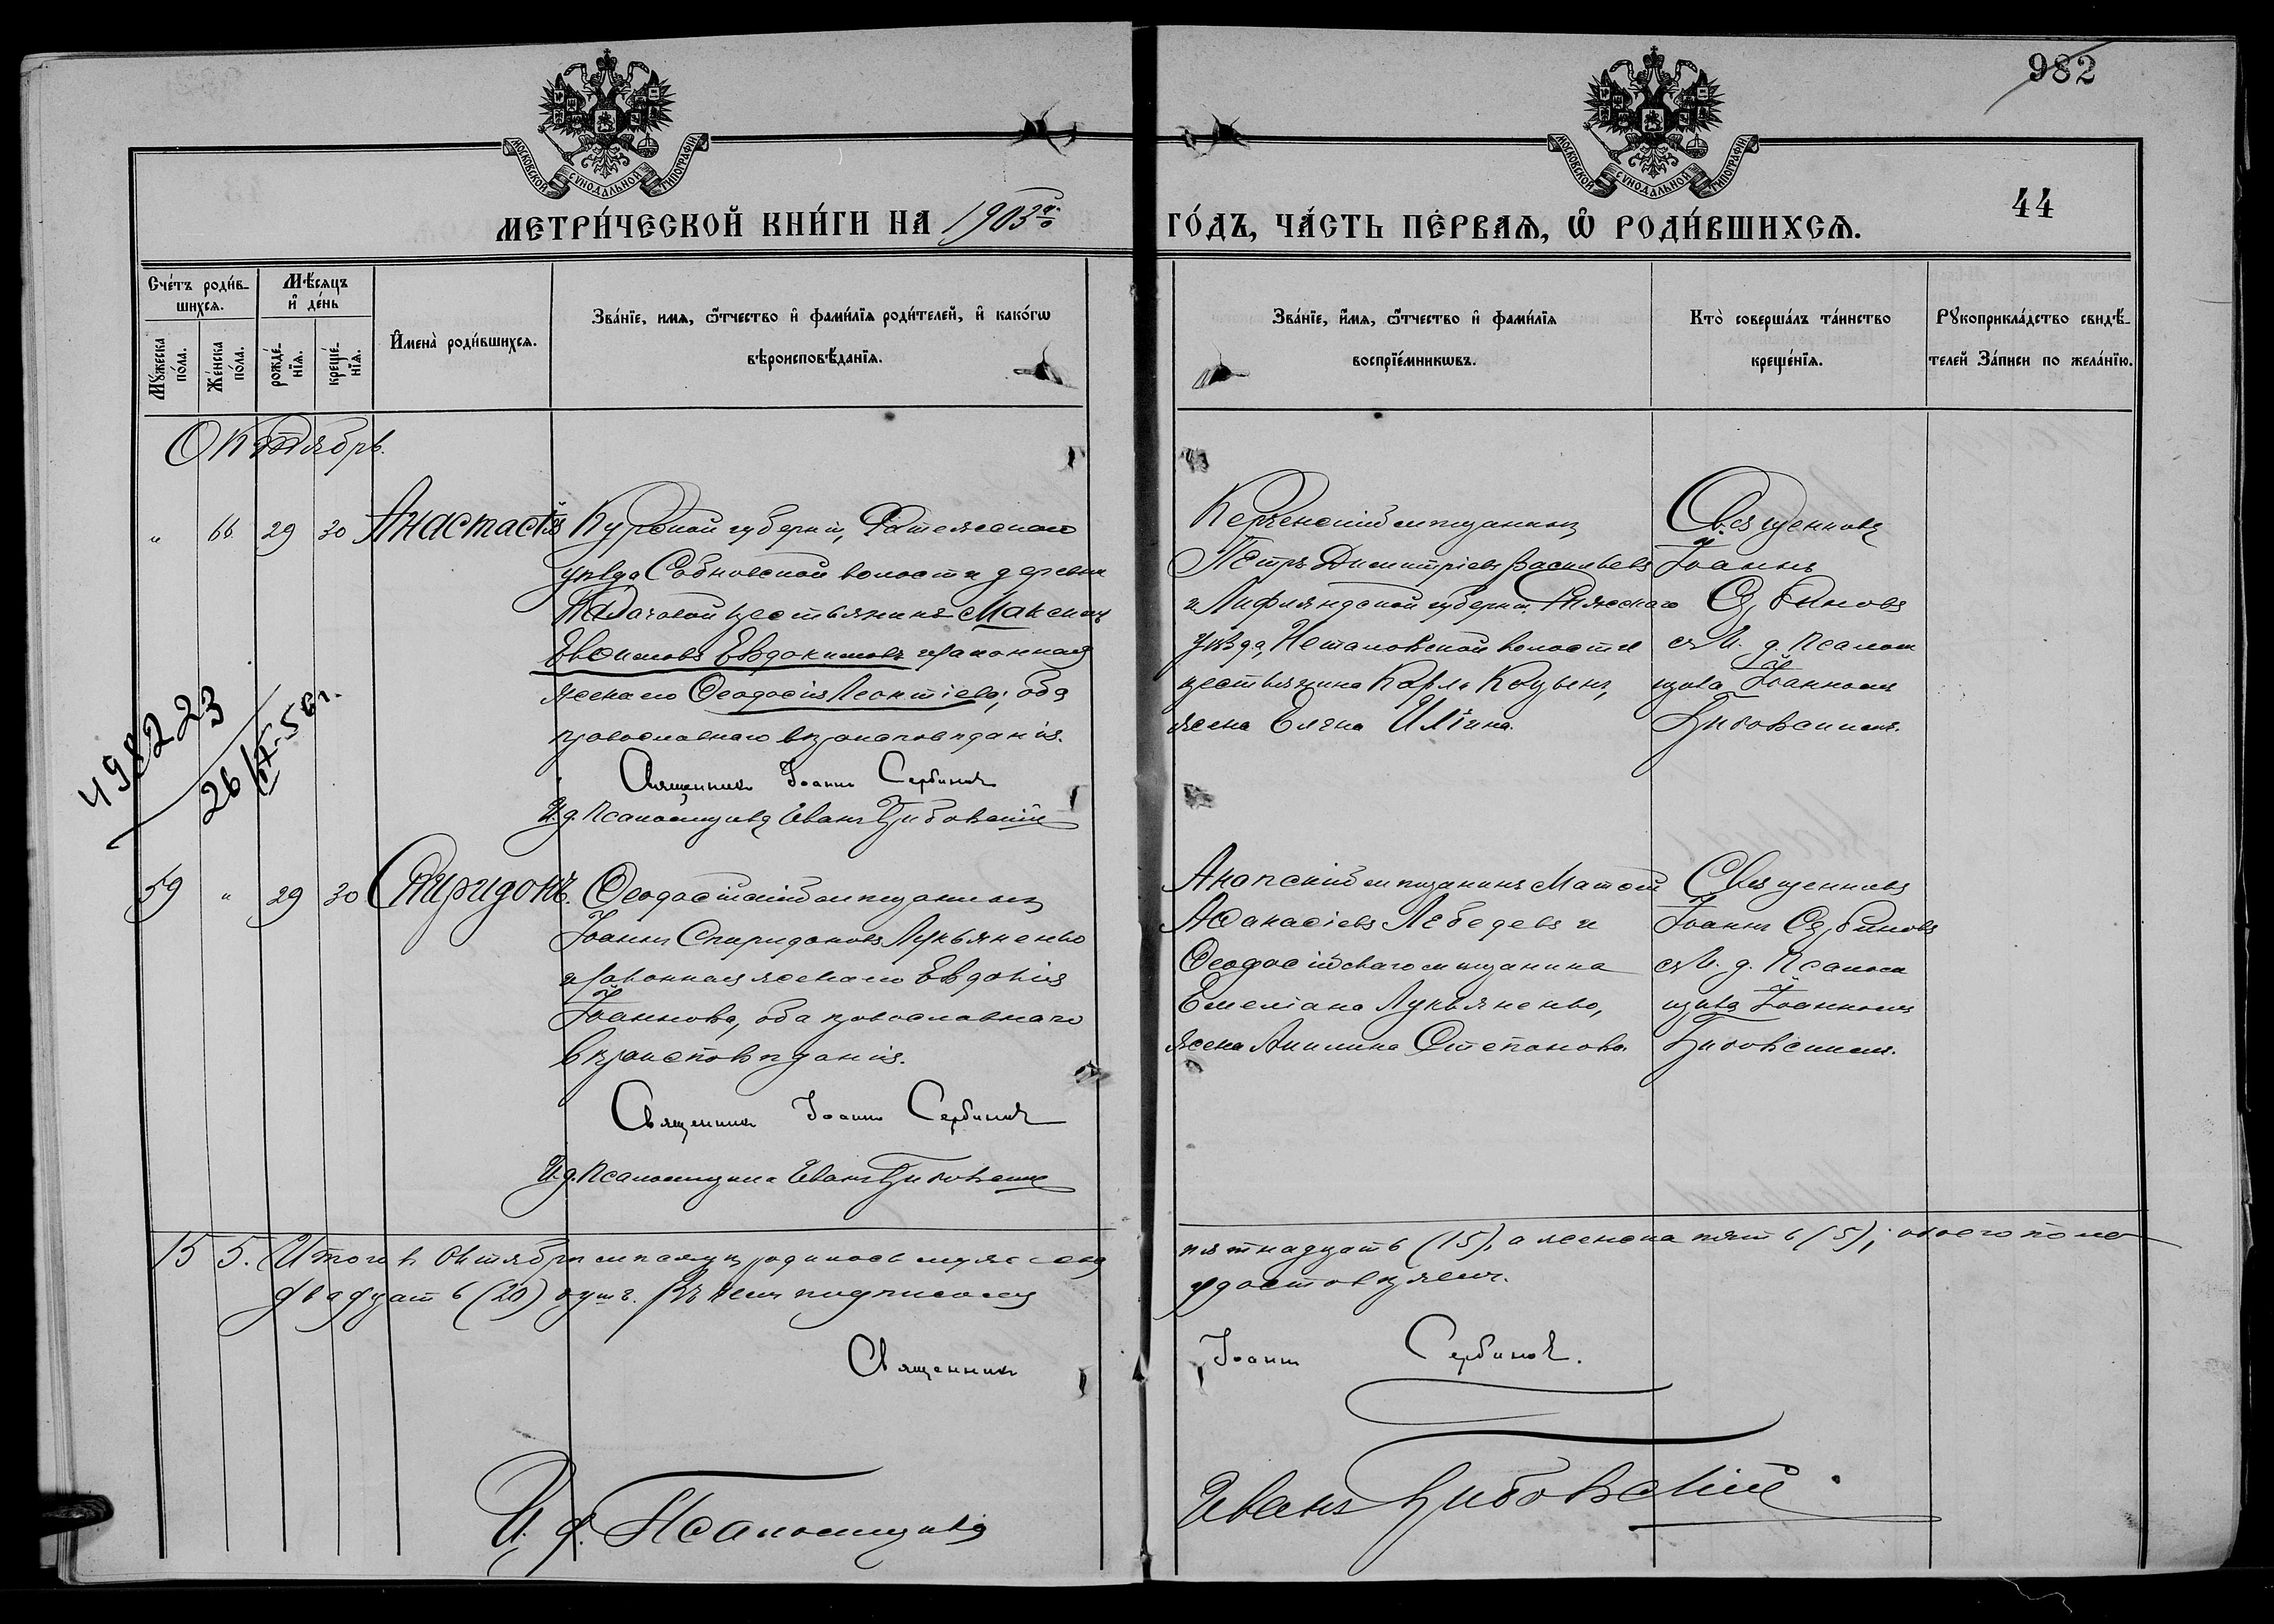 982
44
МОСКОВСКОЙ СУНОДАЛЬНОЙ ТИПОГРАФІИ
МОСКОВСКОЙ СУНОДАЛЬНОЙ ТИПОГРАФІИ
МЕТРИ́ЧЕСКОЙ КНИ́ГИ НА 1903 го
ГО́ДЪ, ЧА́СТЬ ПЕ́РВАѦ, Ѽ РОДИ́ВШИХСѦ.
Сче́тъ роди́в-
шихсѧ.
Мꙋ́жеска по́ла.
Же́нска по́ла.
Мѣ́сѧцъ
и҆ де́нь
рожде́-нїѧ.
креще́-нїѧ.
И҆мена̀ роди́вшихсѧ.
Зва́нїе, имѧ, ѻ҆́тчество и҆ фами́лїѧ роди́телей, и҆ како́гѡ
вѣроисповѣ́данїѧ.
Зва́нїе, и҆́мѧ, ѻ҆́тчество и҆ фами́лїѧ
воспрїе́мникѡвъ.
Кто̀ соверша́лъ та́инство
креще́нїѧ.
Рꙋкоприкла́дство свидѣ́-
телей За́писи по жела́нїю.
Октябрь.
" 66. 29 30 Анастасія
Курской губерніи, Фатежскаго
уѣзда Собновской волости деревни
крестьянинъ Максимъ
Евѳимовъ Евдокимовъ и законная
жена его Ѳеодосія Леонтіева; оба
православнаго вѣроисповѣданія.
Священникъ Іоаннъ Сербиновъ
И. д. Псаломщика Иванъ Цибовскій
Керченскій мѣщанинъ
Петръ Димитріевъ Васильевъ
и Лифляндской губерніи, Рижскаго
уѣзда, волости
крестьянина Карла
жена Елена Ильина.
Священникъ
Іоаннъ
Сербиновъ
съ И. д. Псалом
щика Іоанномъ
Цибовскимъ.
498223
26/IX-56г.
59 " 29 30 Спиридонъ.
Ѳеодосійскій мѣщанинъ
Іоаннъ Спиридоновъ Лукьяненко
и законная жена его Евдокія
Іоаннова, оба православнаго
вѣроисповѣданія.
Священникъ Іоаннъ Сербиновъ
И. д. Псаломщика Иванъ Цибовскій
Анапскій мѣщанинъ Матѳей
Аѳанасіевъ Лебедевъ и
Ѳеодосійскаго мѣщанина
Емеліана Лукьяненко,
жена Акилина Степанова.
Священникъ
Іоаннъ Сербиновъ
съ И. д. Псалом
щика Іоанномъ
Цибовскимъ.
15 5. Итого въ Октябрѣ мѣсяцѣ родилось мужеска
пятнадцать (15), а женска пять (5), обоего пола
двадцать (20) душъ. Въ чемъ подписомъ
удостовѣряемъ.
Священникъ Іоаннъ Сербиновъ.
И. д. Псаломщика Иванъ Цибовскій